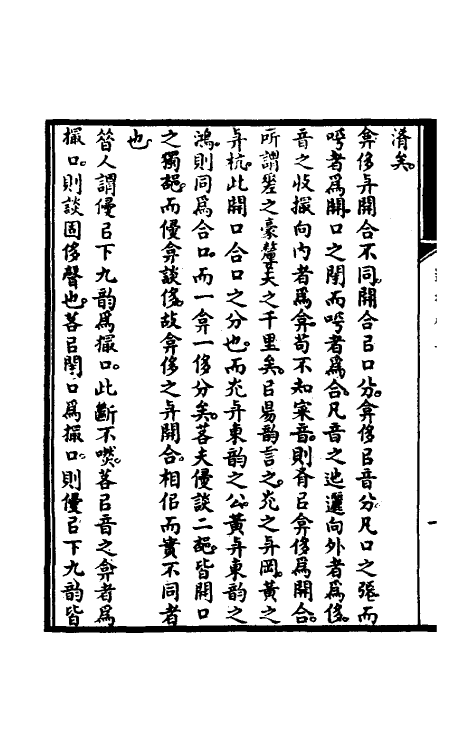 淆矣。
弇侈与開合不同。開合㠯口分。弇侈㠯音分。凡口之張而
呺者爲開。口之閉而呺者爲合。凡音之迆邐向外者爲侈。
音之收撮向內者爲弇。苟不知宷音。則肴㠯弇侈爲開合。
所謂差之豪釐失之千里矣。㠯昜韵言之。炗之与岡。黃之
与杭。此開口合口之分也。而炗与東韵之公。黃与東韵之
鴻。則同爲合口。而一弇一侈分矣。若夫侵談二部。皆開口
之獨部。而侵弇談侈。故弇侈之与開合。相佀而實不同者
也
㫺人謂侵㠯下九韵爲撮口。此斷不然。若㠯音之弇者爲
撮口。則談固侈聲也。若㠯閉口爲撮口。則侵㠯下九韵皆